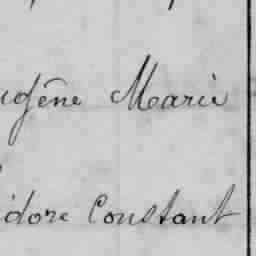 ugène Marie
idore Constant